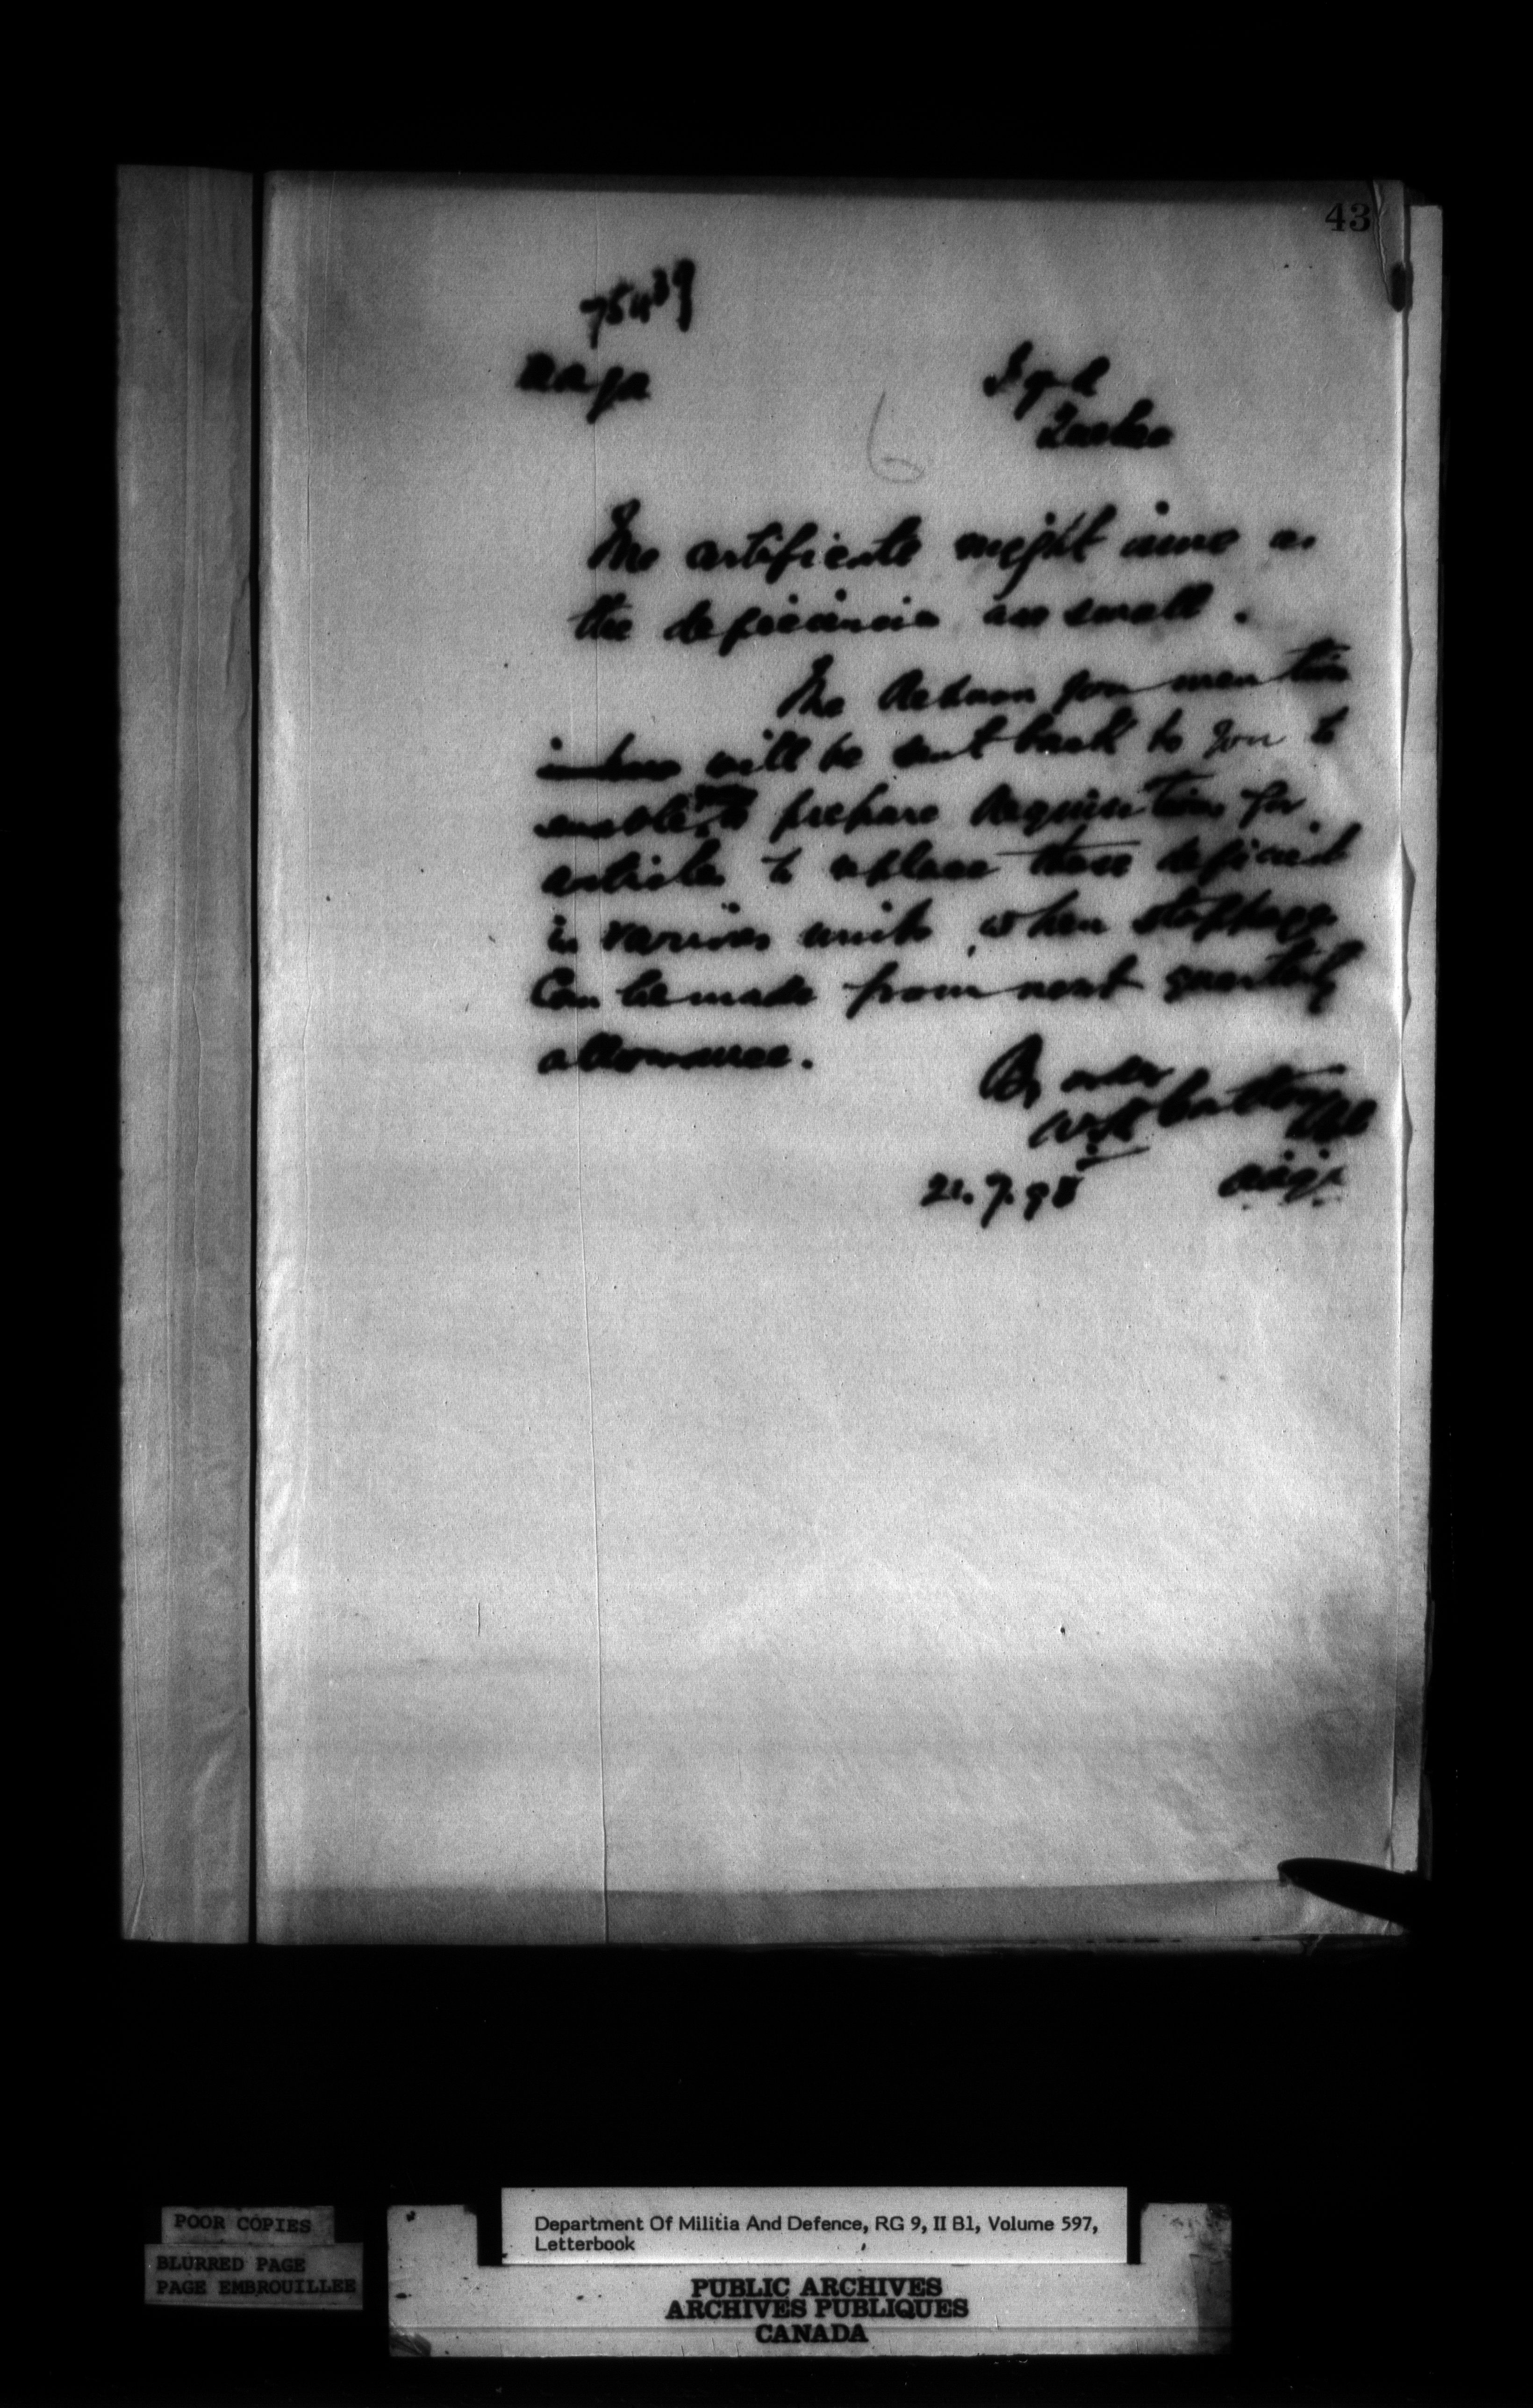 43
75439
6
Quebec
The certificate might issue as
the deficiencies are small.
The Return you mention
will be sent back to you to
enable to prepare Requisitions for
articles to replace those deficient
in various units, when stoppage
Can be made from next quarterly
allowance.
By order
21.9.98
POOR COPIES
BLURRED PAGE
PAGE EMBROUILLEE
Department Of Militia And Defence, RG 9, II B1, Volume 597,
Letterbook
PUBLIC ARCHIVES
ARCHIVES PUBLIQUES
CANADA